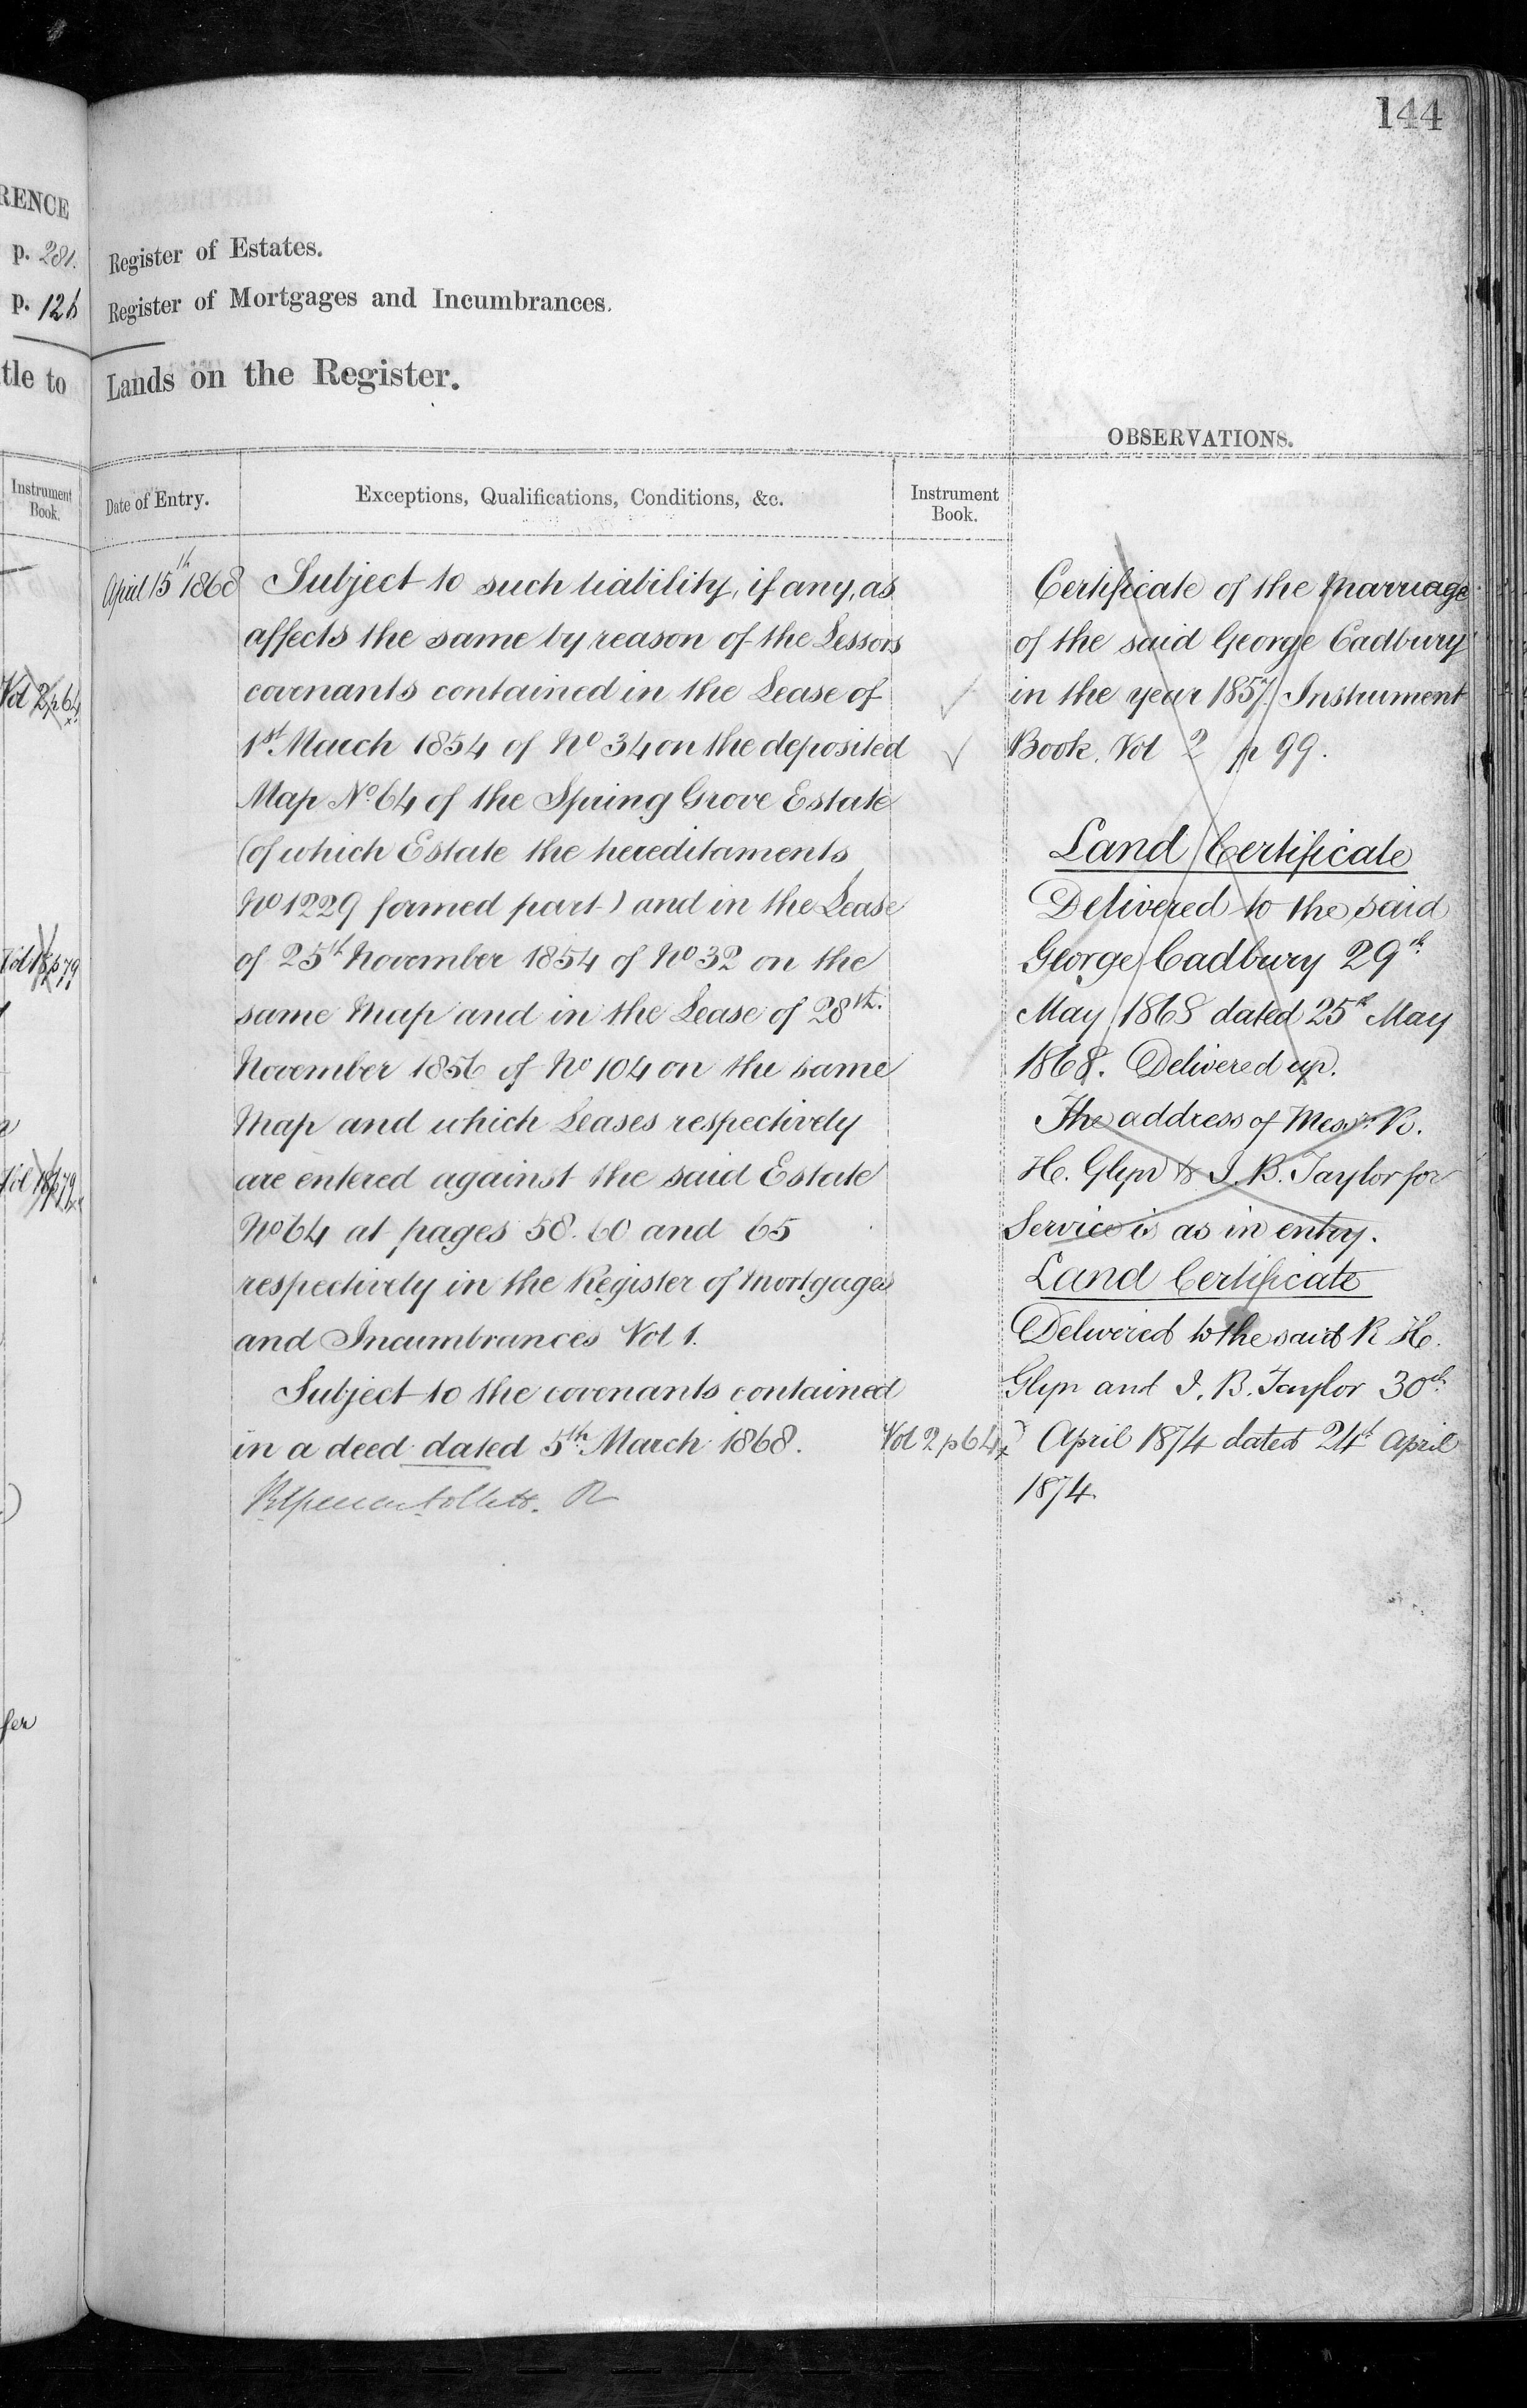 144
RENCE
p. 281.
p. 126
tle to
Instrument
Book.
Vol 2 p 64
Vol 18 p 79
Vol 18 p 79
fer
Register of Estates.
Register of Mortgages and Incumbrances.
Lands on the Register.
Date of Entry.
Exceptions, Qualifications, Conditions, &c.
Instrument
Book.
April 15th 1868
Subject to such liability, if any, as
affects the same by reason of the Lessors
covenants contained in the Lease of
1st March 1854 of No 34 on the deposited
Map No. 64 of the Spring Grove Estate
(of which Estate the hereditaments
No 1229 formed part) and in the Lease
of 25th November 1854 of No 32 on the
same Map and in the Lease of 28th.
November 1856 of No 104 on the same
Map and which Leases respectively
are entered against the said Estate
No 64 at pages 58. 60 and 65
respectively in the Register of Mortgages
and Incumbrances Vol 1.
Subject to the covenants contained
in a deed dated 5th March 1868.
Vol 2 p 64
OBSERVATIONS.
Certificate of the Marriage
of the said George Cadbury
in the year 1857. Instrument
Book, Vol 2 p 99.
Land Certificate
Delivered to the said
George Cadbury 29th
May 1868 dated 25th May
1868. Delivered up.
The address of Messrs. R.
H. Glyn & I. B. Taylor for
Service is as in entry.
Land Certificate
Delivered to the said R H.
Glyn and I. B. Taylor 30th
April 1874 dated 24th April
1874